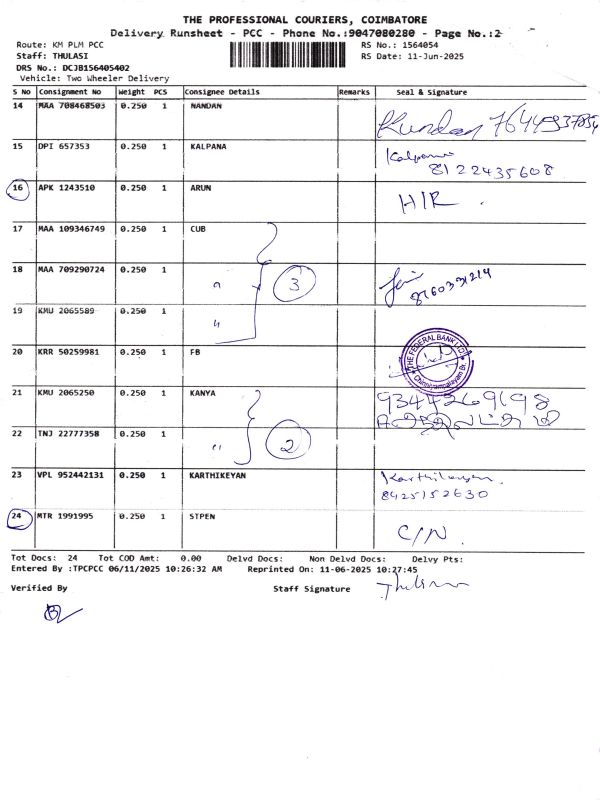 THE PROFESSIONAL COURIERS, COIMBATORE
Delivery Runsheet - PCC - Phone No.:9047080280 - Page No.:2
Route: KM PLM PCC RS No.: 1564054
Staff: THULASI RS Date: 11-Jun-2025
DRS No.: DCJB156405402
Vehicle: Two Wheeler Delivery
S No Consignment No Weight PCS Consignee Details Remarks Seal & Signature
14 MAA 708468503 0.250 1 NANDAN
Kundan
15 DPI 657353 0.250 1 KALPANA Kalpana
8122435608
16 APK 1243510 0.250 1 ARUN H/R .
17 MAA 109346749 0.250 1 CUB
18 MAA 709290724 0.250 1 " 3
8760331214
19 KMU 2065589 0.250 1 "
20 KRR 50259981 0.250 1 FB THE FEDERAL BANK LTD
21 KMU 2065250 0.250 1 KANYA 9344269198
22 TNJ 22777358 0.250 1 " 2
23 VPL 952442131 0.250 1 KARTHIKEYAN Karthikeyan
8425152630
24 MTR 1991995 0.250 1 STPEN C/N.
Tot Docs: 24 Tot COD Amt: 0.00 Delvd Docs: Non Delvd Docs: Delvy Pts:
Entered By :TPCPCC 06/11/2025 10:26:32 AM Reprinted On: 11-06-2025 10:27:45
Verified By Staff Signature